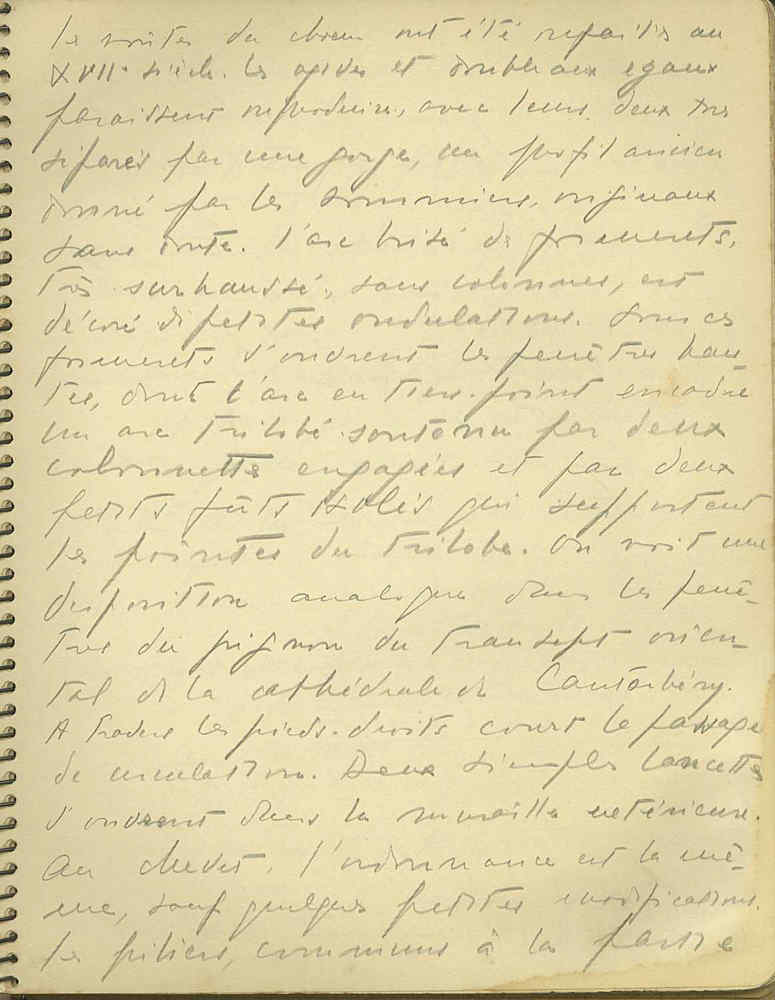 Les voûtes du chœur ont été refaites au
XVIIe siècle. Les ogives et doubleaux egaux
paraissent reproduire, avec leurs deux tores
séparés par une gorge, un profil ancien
donné par les sommiers, originaux
sans doute. L'arc brisé de formerets,
très surhaussé, sans colonnes, est
décoré de petites ondulations. Sous ces
formerets s'ouvrent les fenêtres hau
tes, dont l'arc en tiers-point encadre
un arc trilobé soutenu par deux
colonnettes engagées et par deux
petits fûts isolés qui supportent
les pointes du trilobe. On voit une
disposition analogue dans les fenê-
tres du pignon du transept orien-
tal de la cathédrale de Cantorbéry.
A travers les pieds-droits court le passage
de circulation. Deux simples lancettes
s'ouvrent dans la muraille extérieure.
Au chevet, l'ordonnance est la mê-
me, sauf quelques petites modifications.
Les piliers, communs à la partie